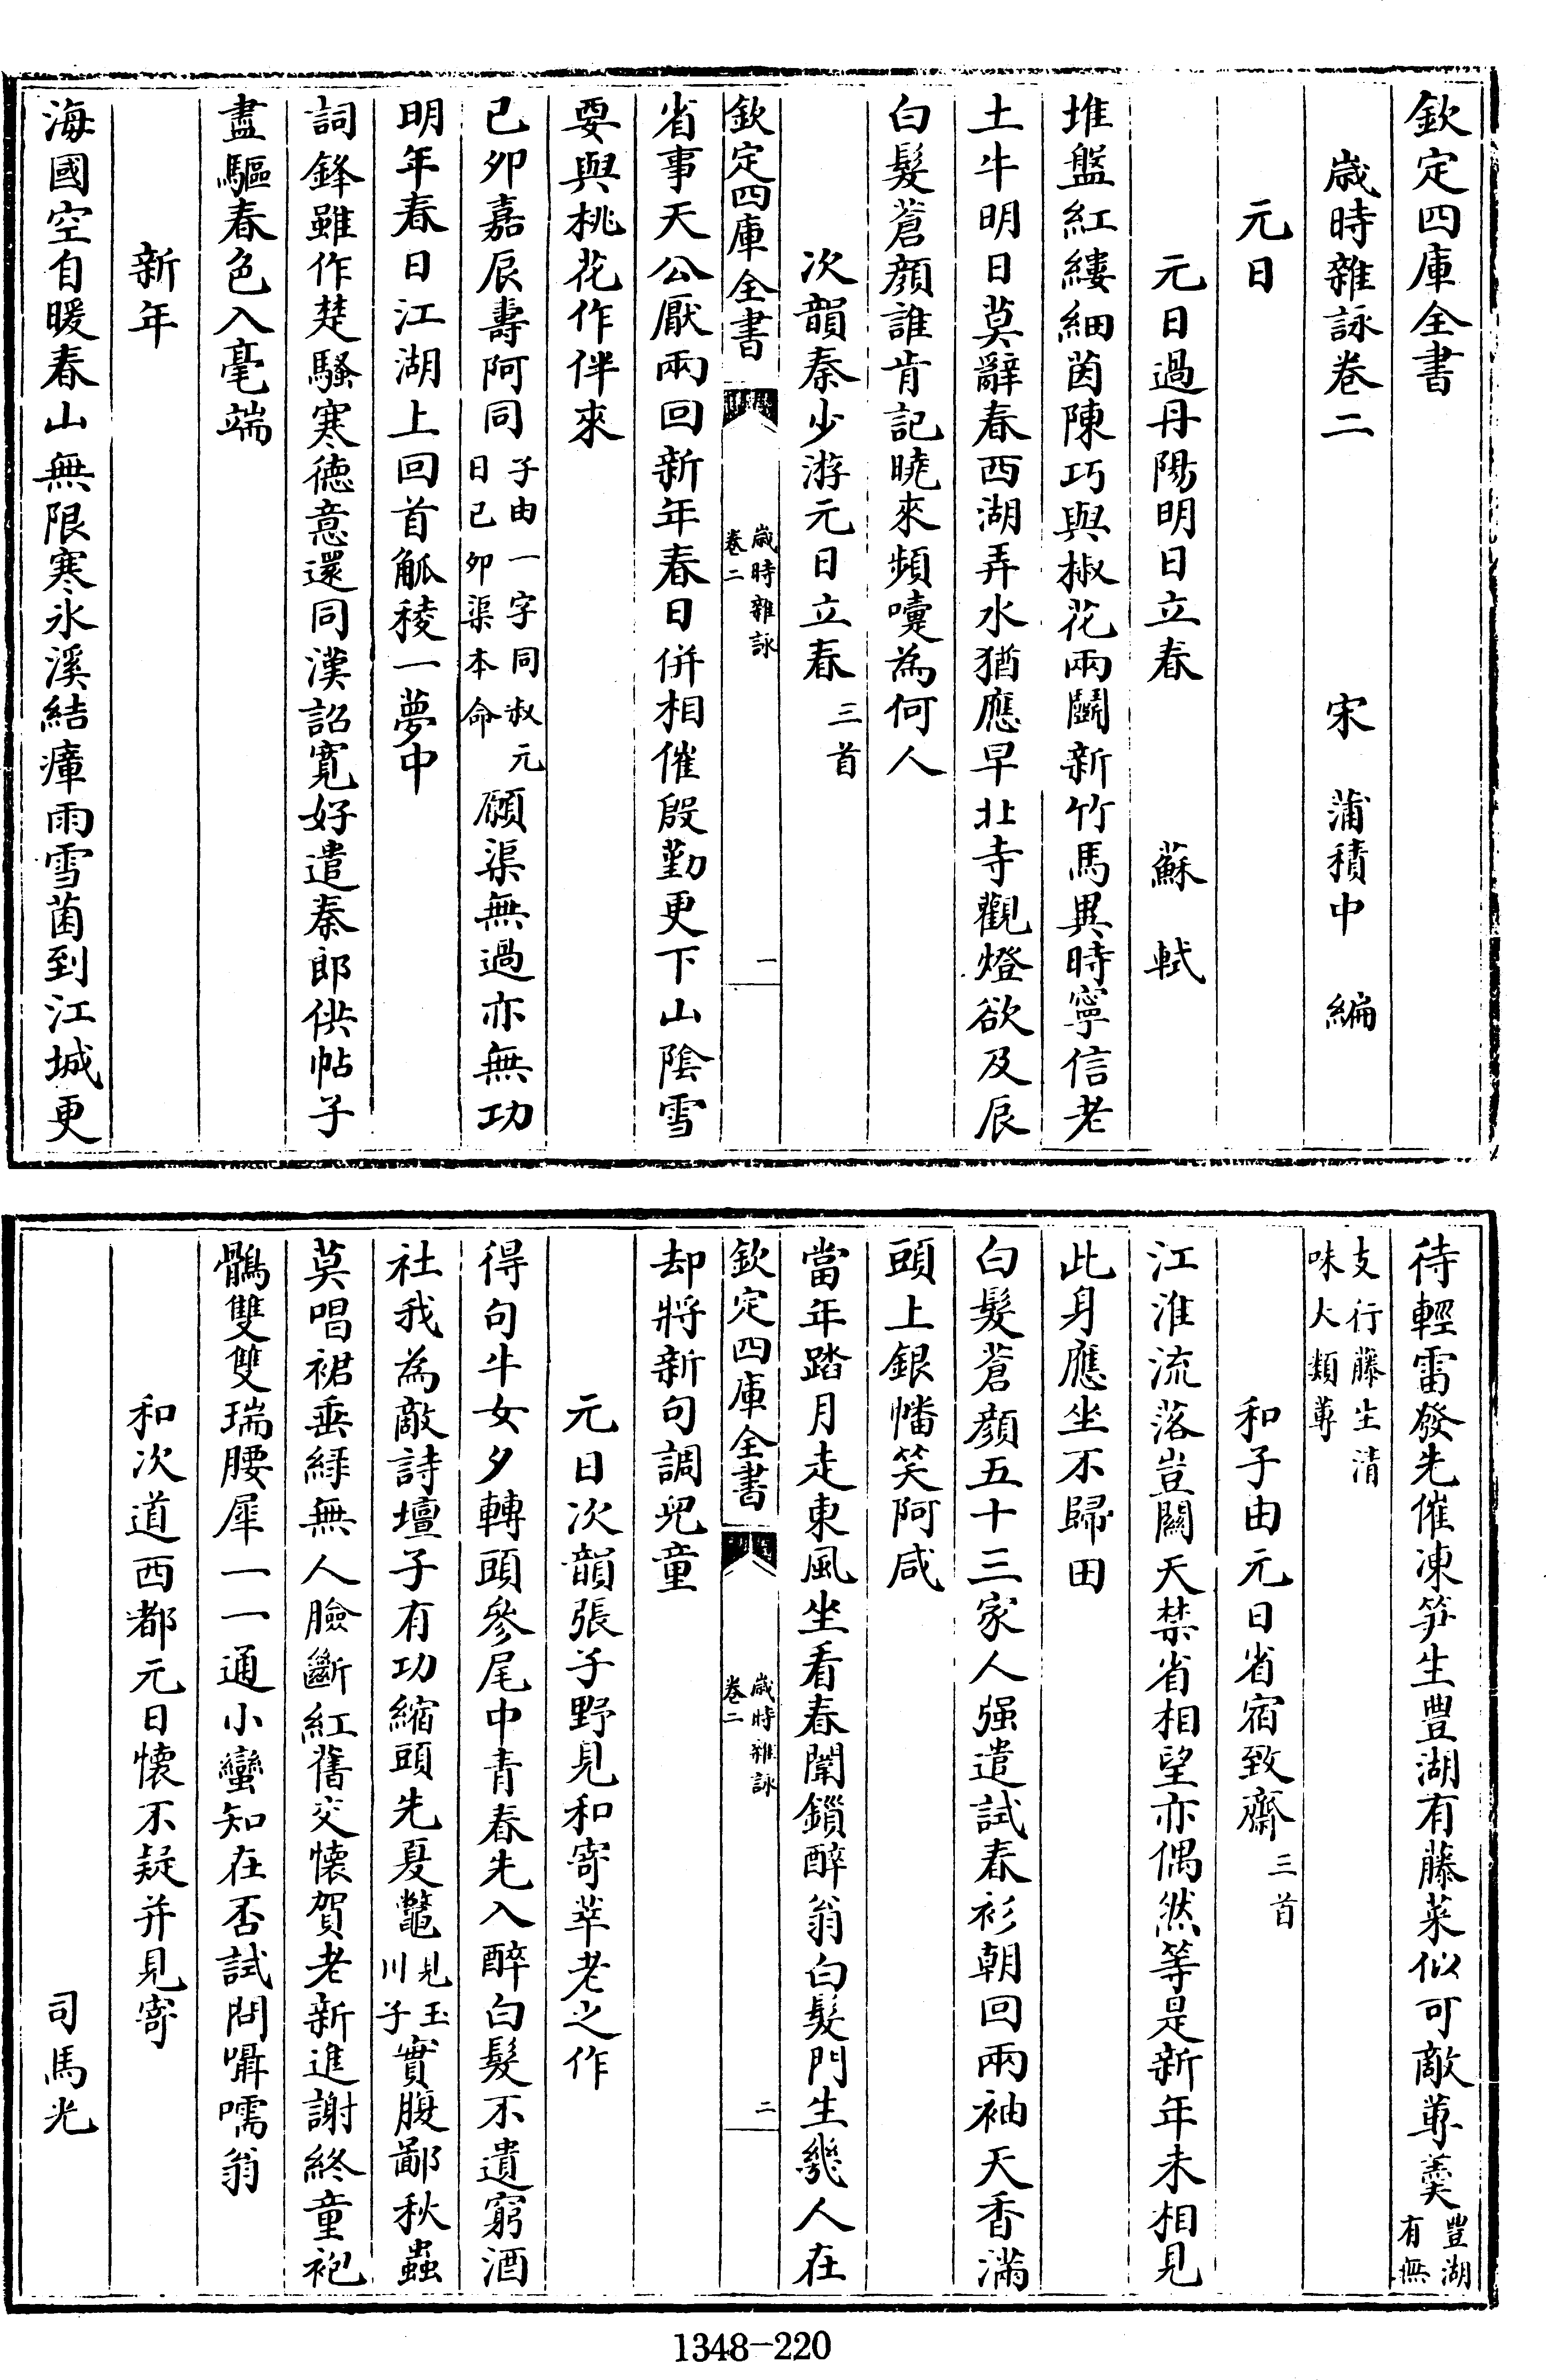 欽定四庫全書
歲時雜詠卷二　宋　蒲積中　編
元日
元日過丹陽明日立春　蘇軾
堆盤紅縷細茵陳巧與椒花兩鬭新竹馬異時寧信老
土牛明日莫辭春西湖弄水猶應早北寺觀燈欲及辰
白髮蒼顏誰肯記曉來頻嚏為何人
次韻秦少游元日立春三首
欽定四庫全書　歲時雜詠卷二　一
省事天公厭兩回新年春日併相催殷勤更下山陰雪
要與桃花作伴來
己卯嘉辰壽阿同子由一字同叔元日己卯渠本命願渠無過亦無功
明年春日江湖上回首觚稜一夢中
詞鋒雖作楚騷寒德意還同漢詔寬好遣秦郎供帖子
盡驅春色入毫端
新年
海國空自暖春山無限寒氷溪結瘴雨雪菌到江城更
待輕雷發先催凍笋生豐湖有藤菜似可敵蓴羮豐湖有無
支行藤生清味大類蓴
和子由元日省宿致齋三首
江淮流落豈關天禁省相望亦偶然等是新年未相見
此身應坐不歸田
白髮蒼顏五十三家人强遣試春衫朝回兩袖天香滿
頭上銀幡笑阿咸
當年踏月走東風坐看春闈鎖醉翁白髮門生幾人在
欽定四庫全書　歲時雜詠卷二　二
却將新句調兒童
元日次韻張子野見和寄莘老之作
得句牛女夕轉頭參尾中青春先入醉白髮不遺窮酒
社我為敵詩壇子有功縮頭先夏鼈見玉川子實腹鄙秋蟲
莫唱裙垂綠無人臉斷紅舊交懷賀老新進謝終童袍
鶻雙雙瑞腰犀一一通小蠻知在否試問囁嚅翁
和次道西都元日懷不疑并見寄
司馬光
1348-220